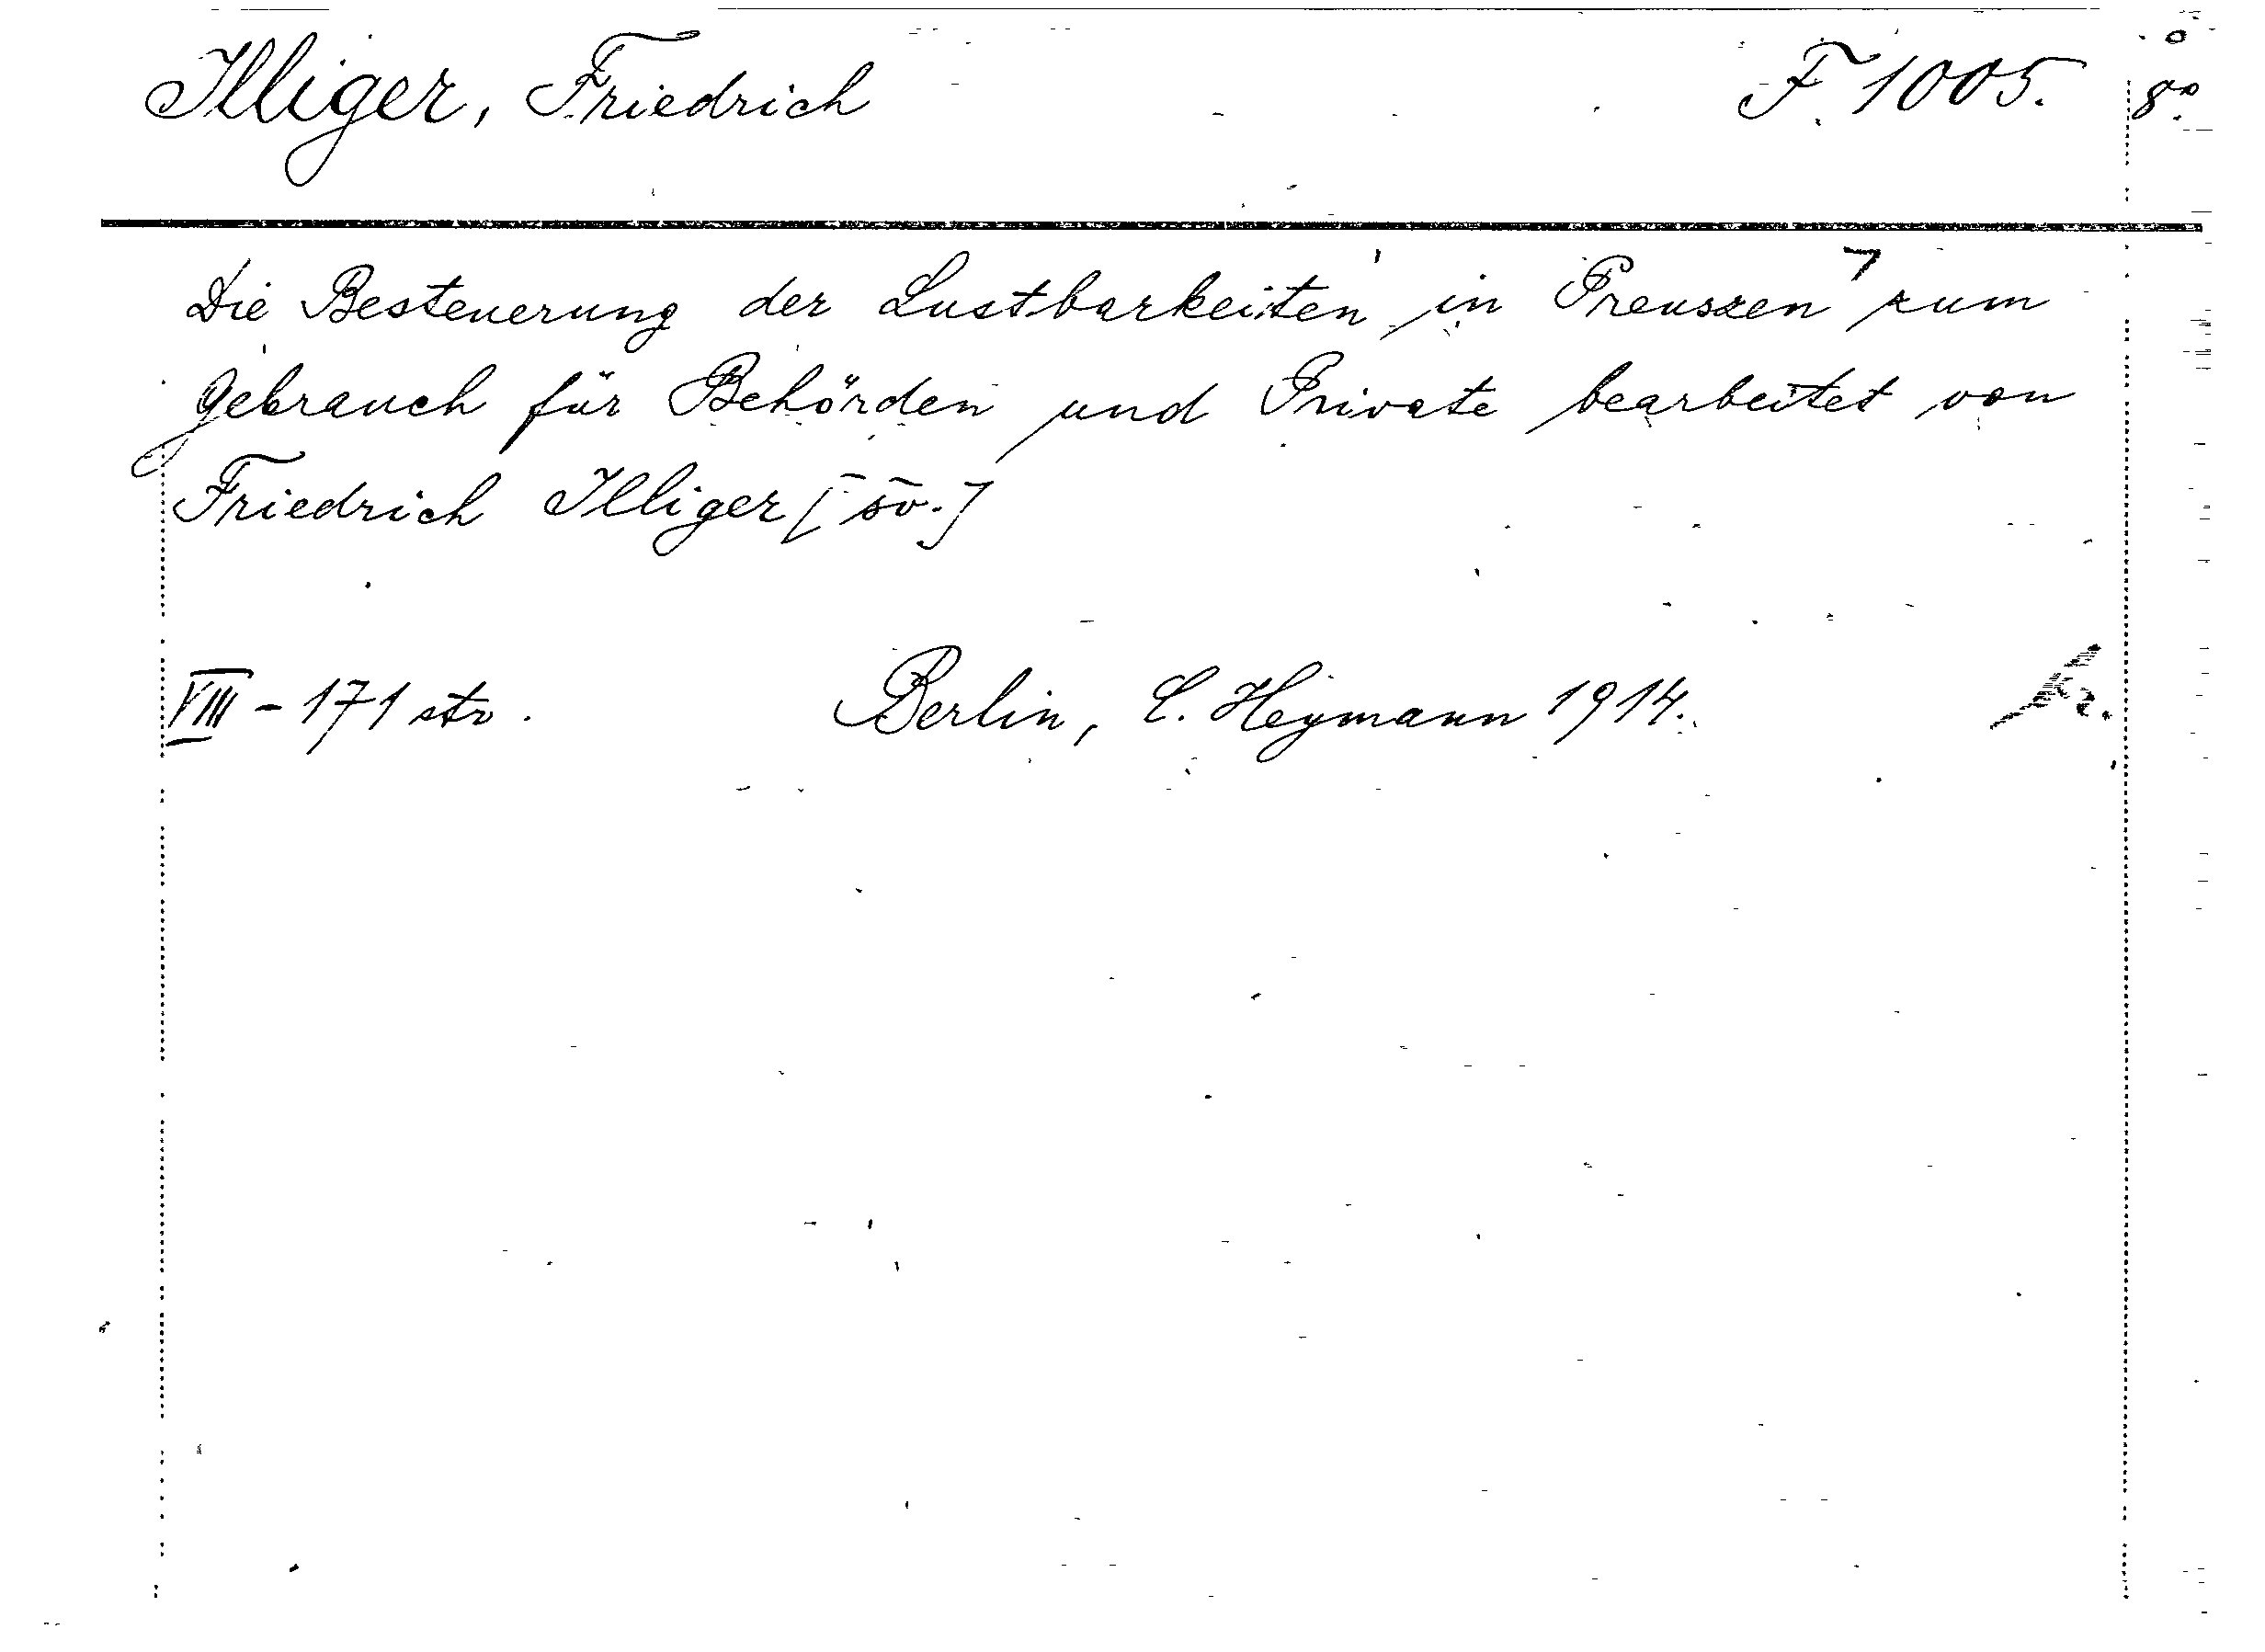 Illiger, Friedrich F. 1005. 8°
Die Besteuerung der Lustbarkeiten in Preuszen zum
Gebrauch für Behörden und Private bearbeitet von
Friedrich Illiger [sv.]
VIII - 171 str. Berlin, C. Heymann 1914.